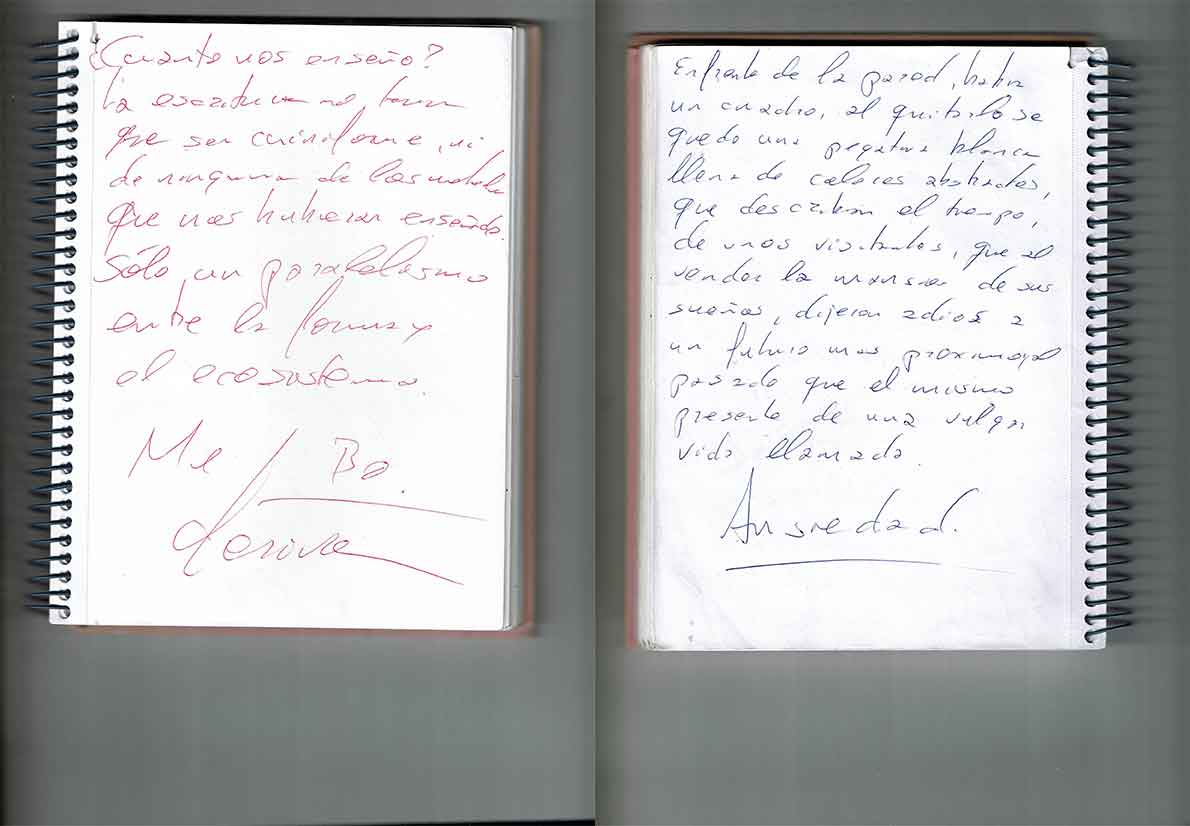 ¿Cuanto nos enseño?
La escritura no tiene
que ser cuniforme, ni
de ninguna de las
que nos hubieran enseñado.
Sólo, un paralelismo
entre la forma y
el ecosistema.
Me Ba.
Enfrente de la pared, habia
un cuadro, al quitarlo se
quedo una pegatina blanca
llena de colores abstractos,
que describian el tiempo,
de unos visitantes, que al
vender la mansion de sus
sueños, dijeron adios a
un futuro mas proximo al
pasado que el mismo
presente de una vulgar
vida llamada.
Ansiedad.